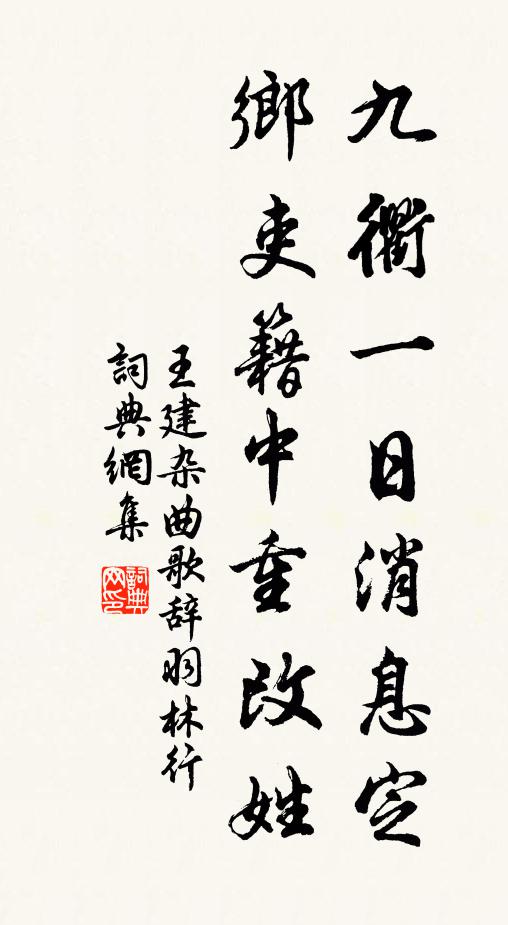 九衢一日消息定
鄉吏籍中重改姓
王建杂曲歌辞羽林行
詞典網集
詞典
网印